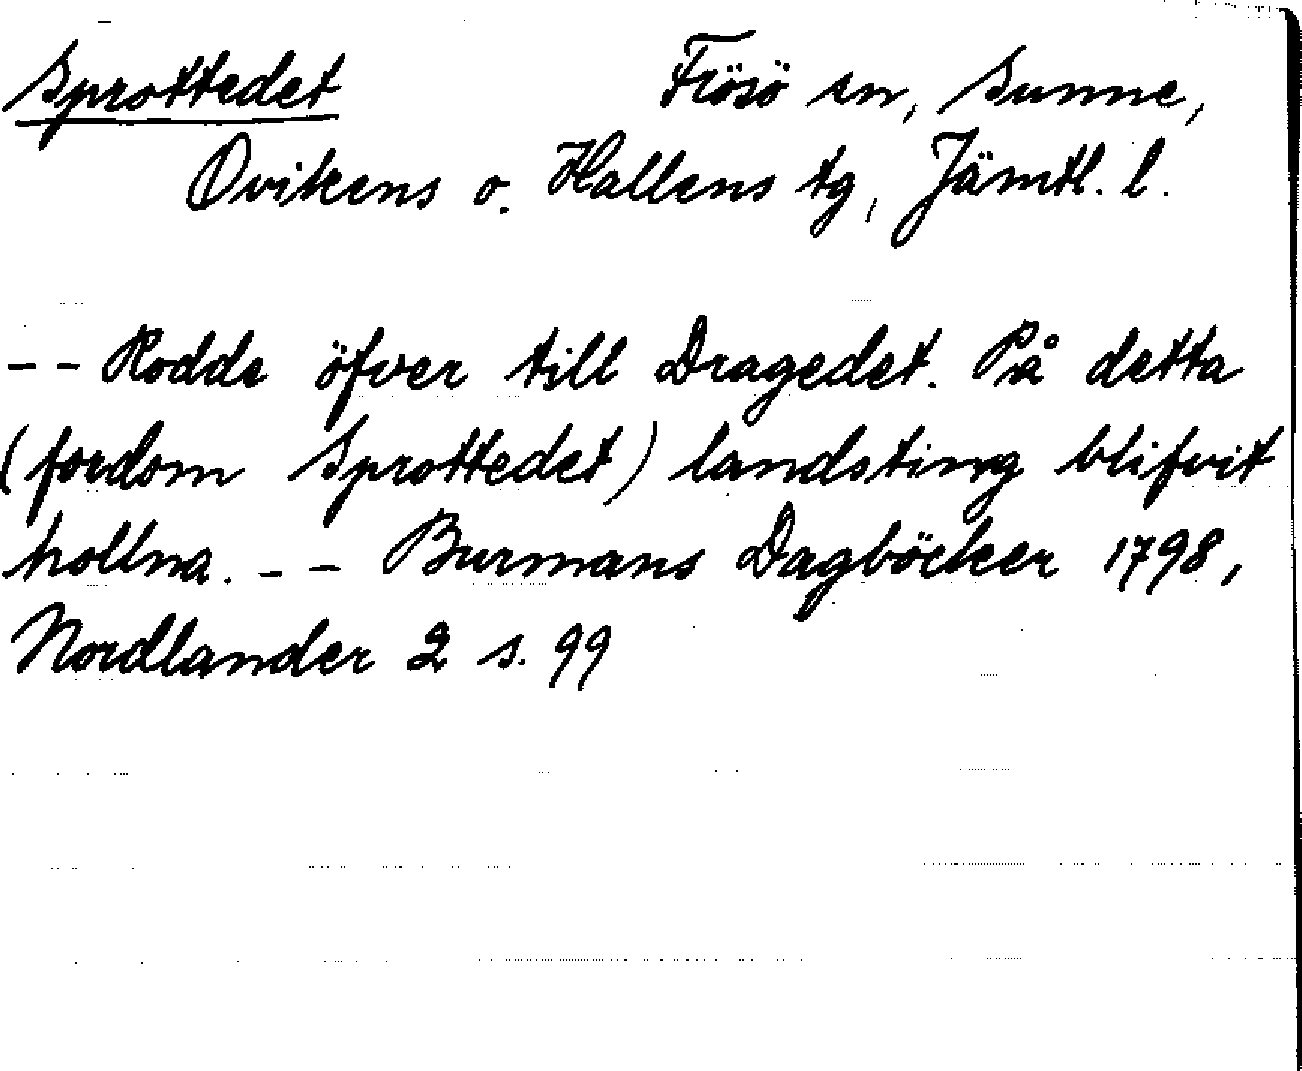 Sprottedet Frösö sn, Sunne,
Ovikens o. Hallens tg, Jämtl. l.
-- Rodde öfver till Dragedet. På detta
(fordom Sprottedet) landsting blifvit
hollna. -- Burmans Dagböcker 1798,
Nordlander 2 s. 99